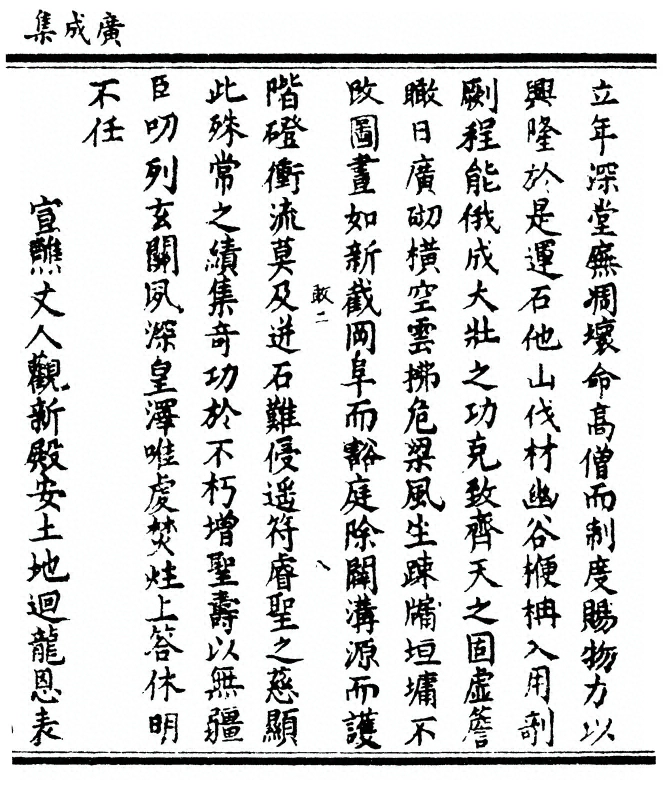 廣成集
立年深堂廡凋壞命髙僧而制度賜物力以
興隆於是運石他山伐材幽谷楩柟入用剞
劂程能俄成大壯之功克致齊天之固虛簷
瞰日廣砌橫空雲拂危梁風生踈牖垣墉不
改圖畫如新截岡阜而豁庭除闢溝源而護
階磴衝流莫及迸石難侵遥符睿聖之慈顯
此殊常之績集奇功於不朽增聖壽以無疆
臣叨列玄關夙深皇澤唯虔焚炷上答休明
不任
宣醮丈人觀新殿安土地迴龍恩表